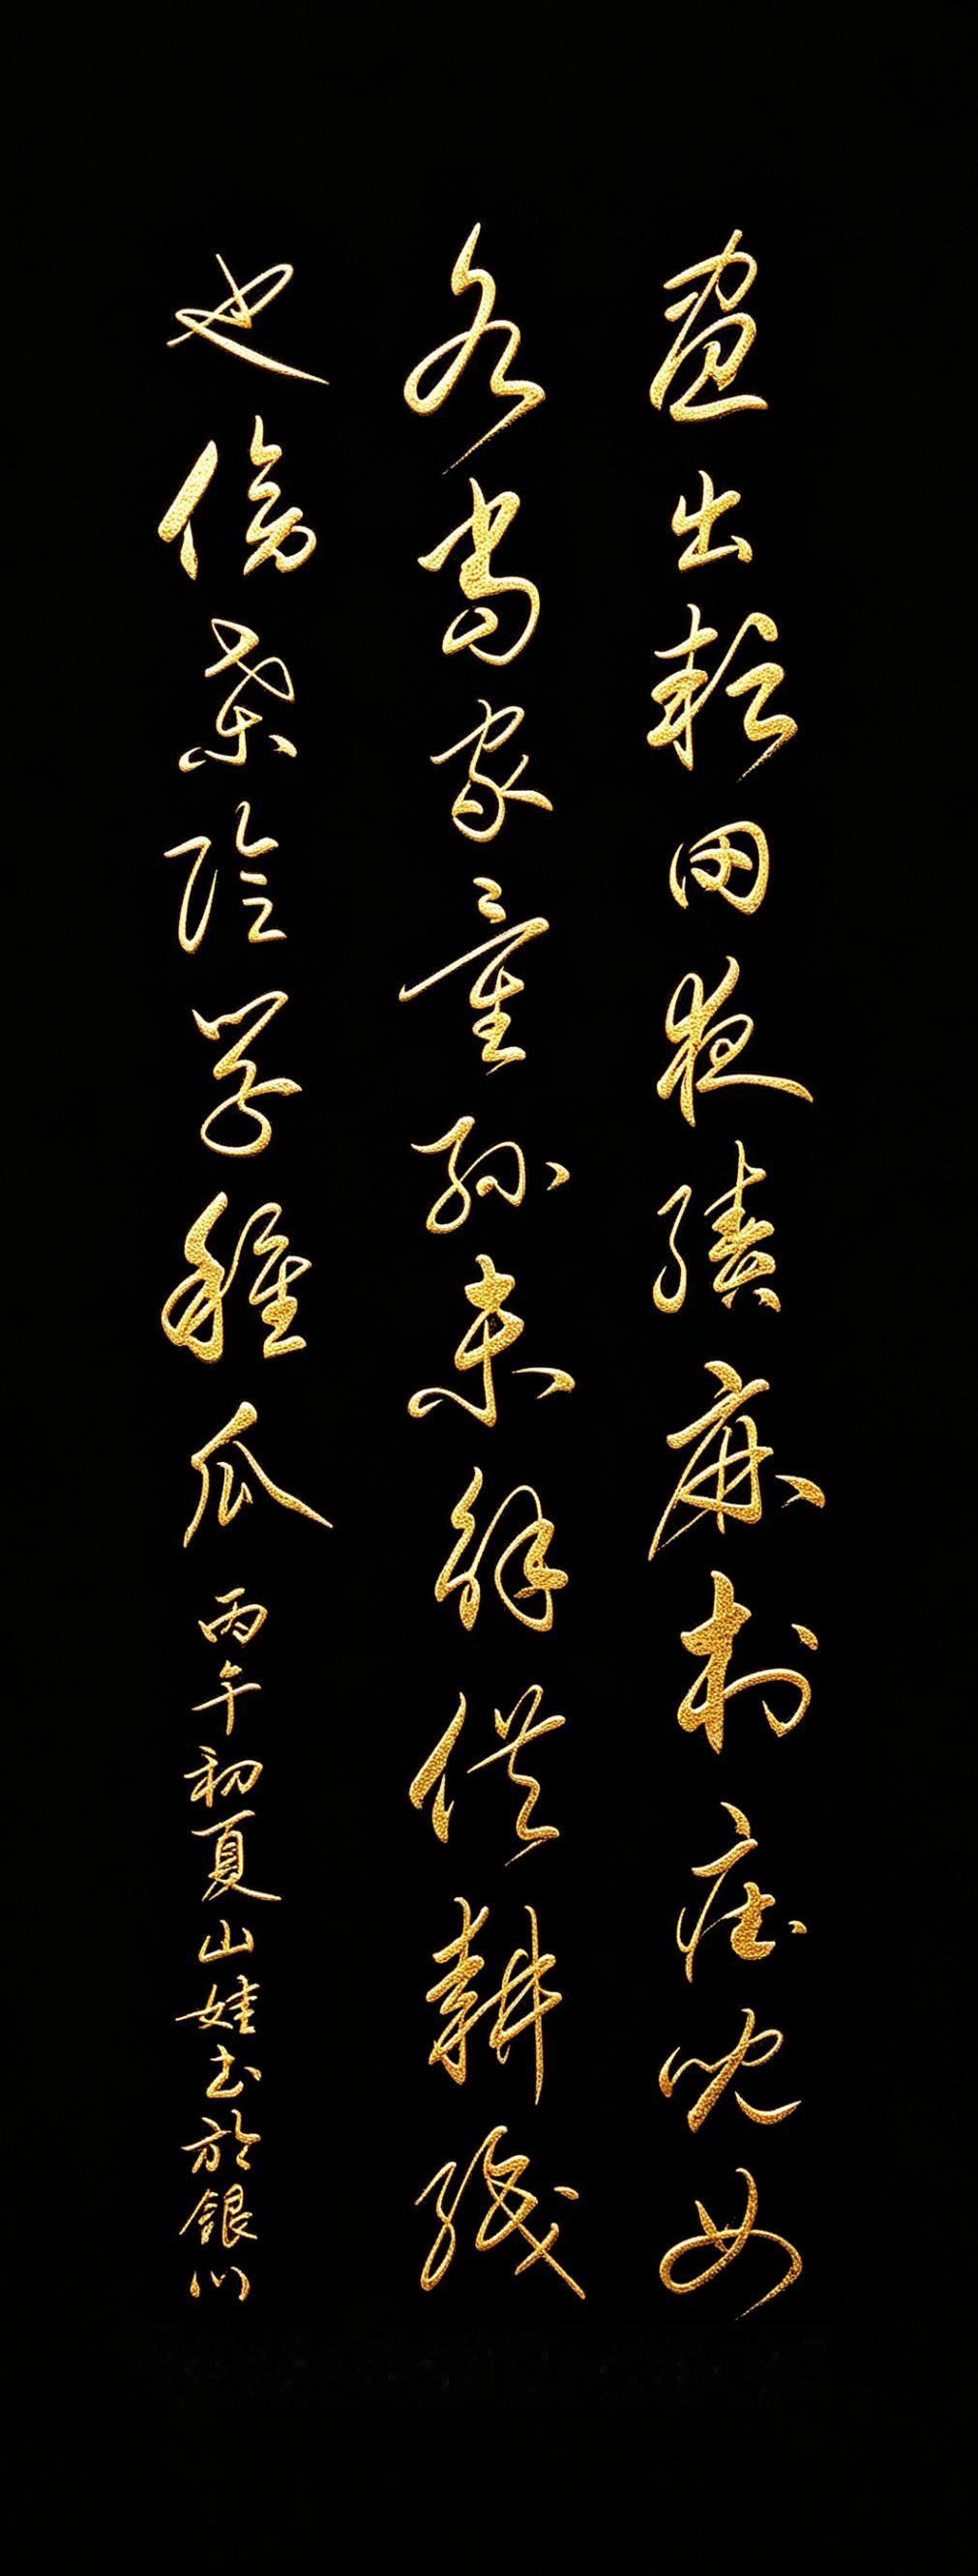 晝出耘田夜績麻村庄兒女
各當家童孫未解供耕織
也傍桑陰學種瓜 丙午初夏山娃書於銀川